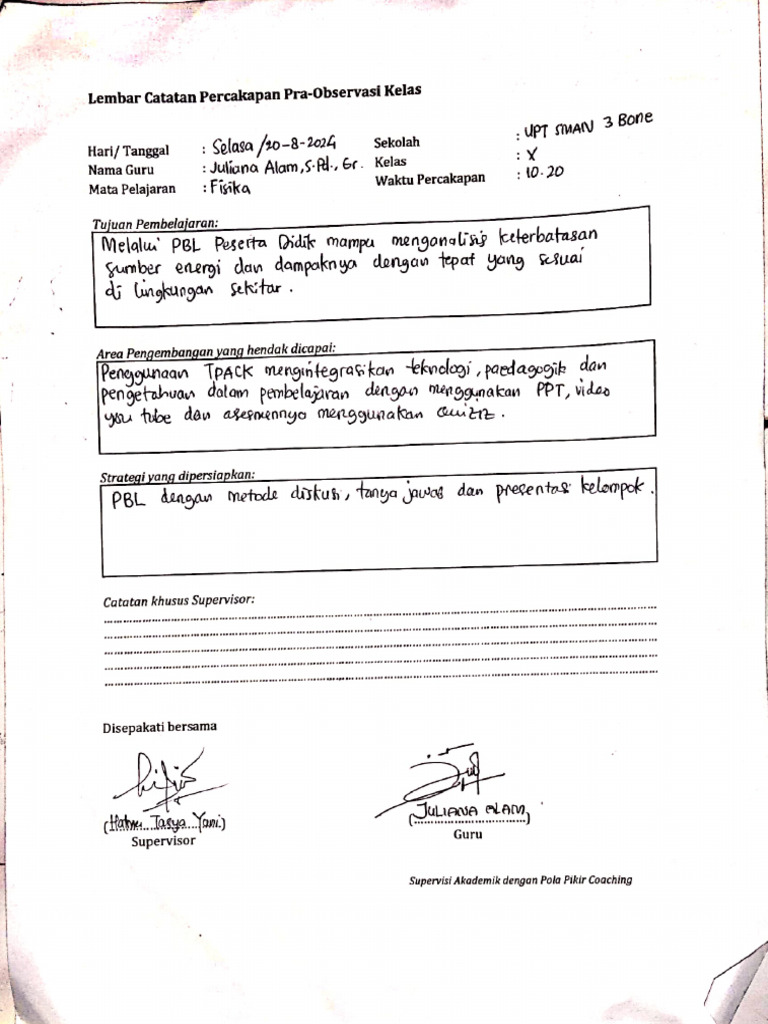 Lembar Catatan Percakapan Pra-Observasi Kelas
Hari/ Tanggal : Selasa /20-8-2024 Sekolah : UPT SMAN 3 Bone
Nama Guru : Juliana Alam, S.Pd., Gr. Kelas : X
Mata Pelajaran : Fisika Waktu Percakapan : 10.20
Tujuan Pembelajaran:
Melalui PBL Peserta Didik mampu menganalisis keterbatasan
sumber energi dan dampaknya dengan tepat yang sesuai
di lingkungan sekitar.
Area Pengembangan yang hendak dicapai:
Penggunaan TPACK mengintegrasikan teknologi, paedagogik dan
pengetahuan dalam pembelajaran dengan menggunakan PPT, video
you tube dan asesmennya menggunakan Quiziz.
Strategi yang dipersiapkan:
PBL dengan metode diskusi, tanya jawab dan presentasi kelompok.
Catatan khusus Supervisor:
Disepakati bersama
(Tasya Yani.) (JULIANA ALAM,)
Supervisor Guru
Supervisi Akademik dengan Pola Pikir Coaching